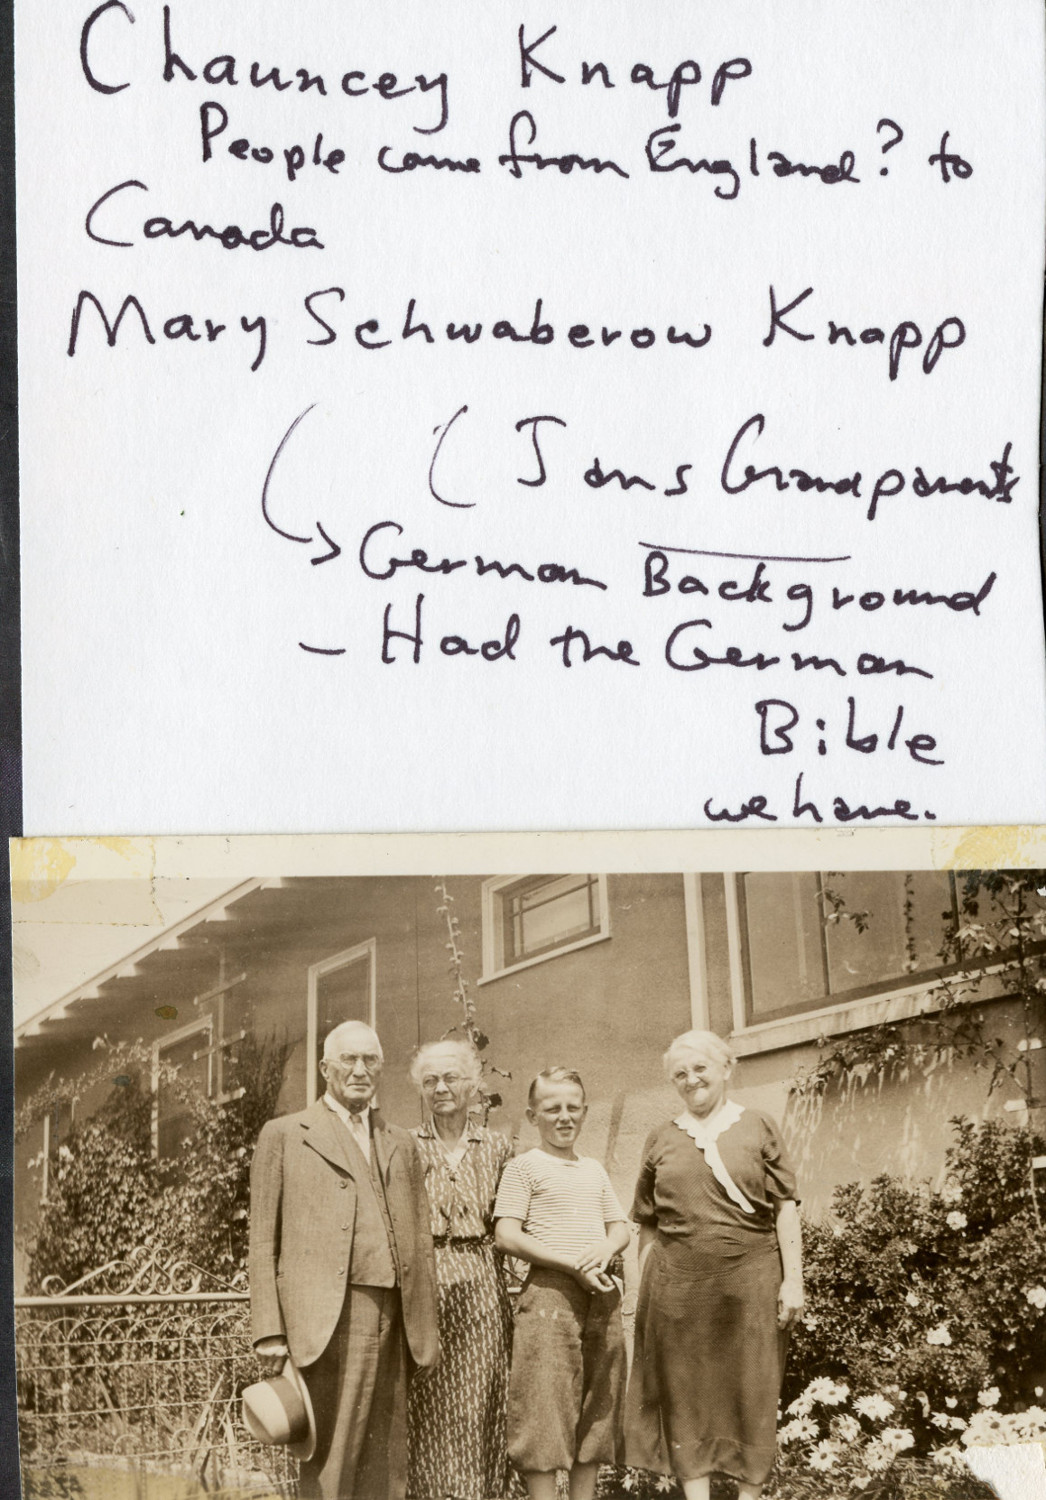 Chauncey Knapp
People came from England? to
Canada
Mary Schwaberow Knapp
( Jans Grandparents
→ German Background
- Had the German
Bible
we have.